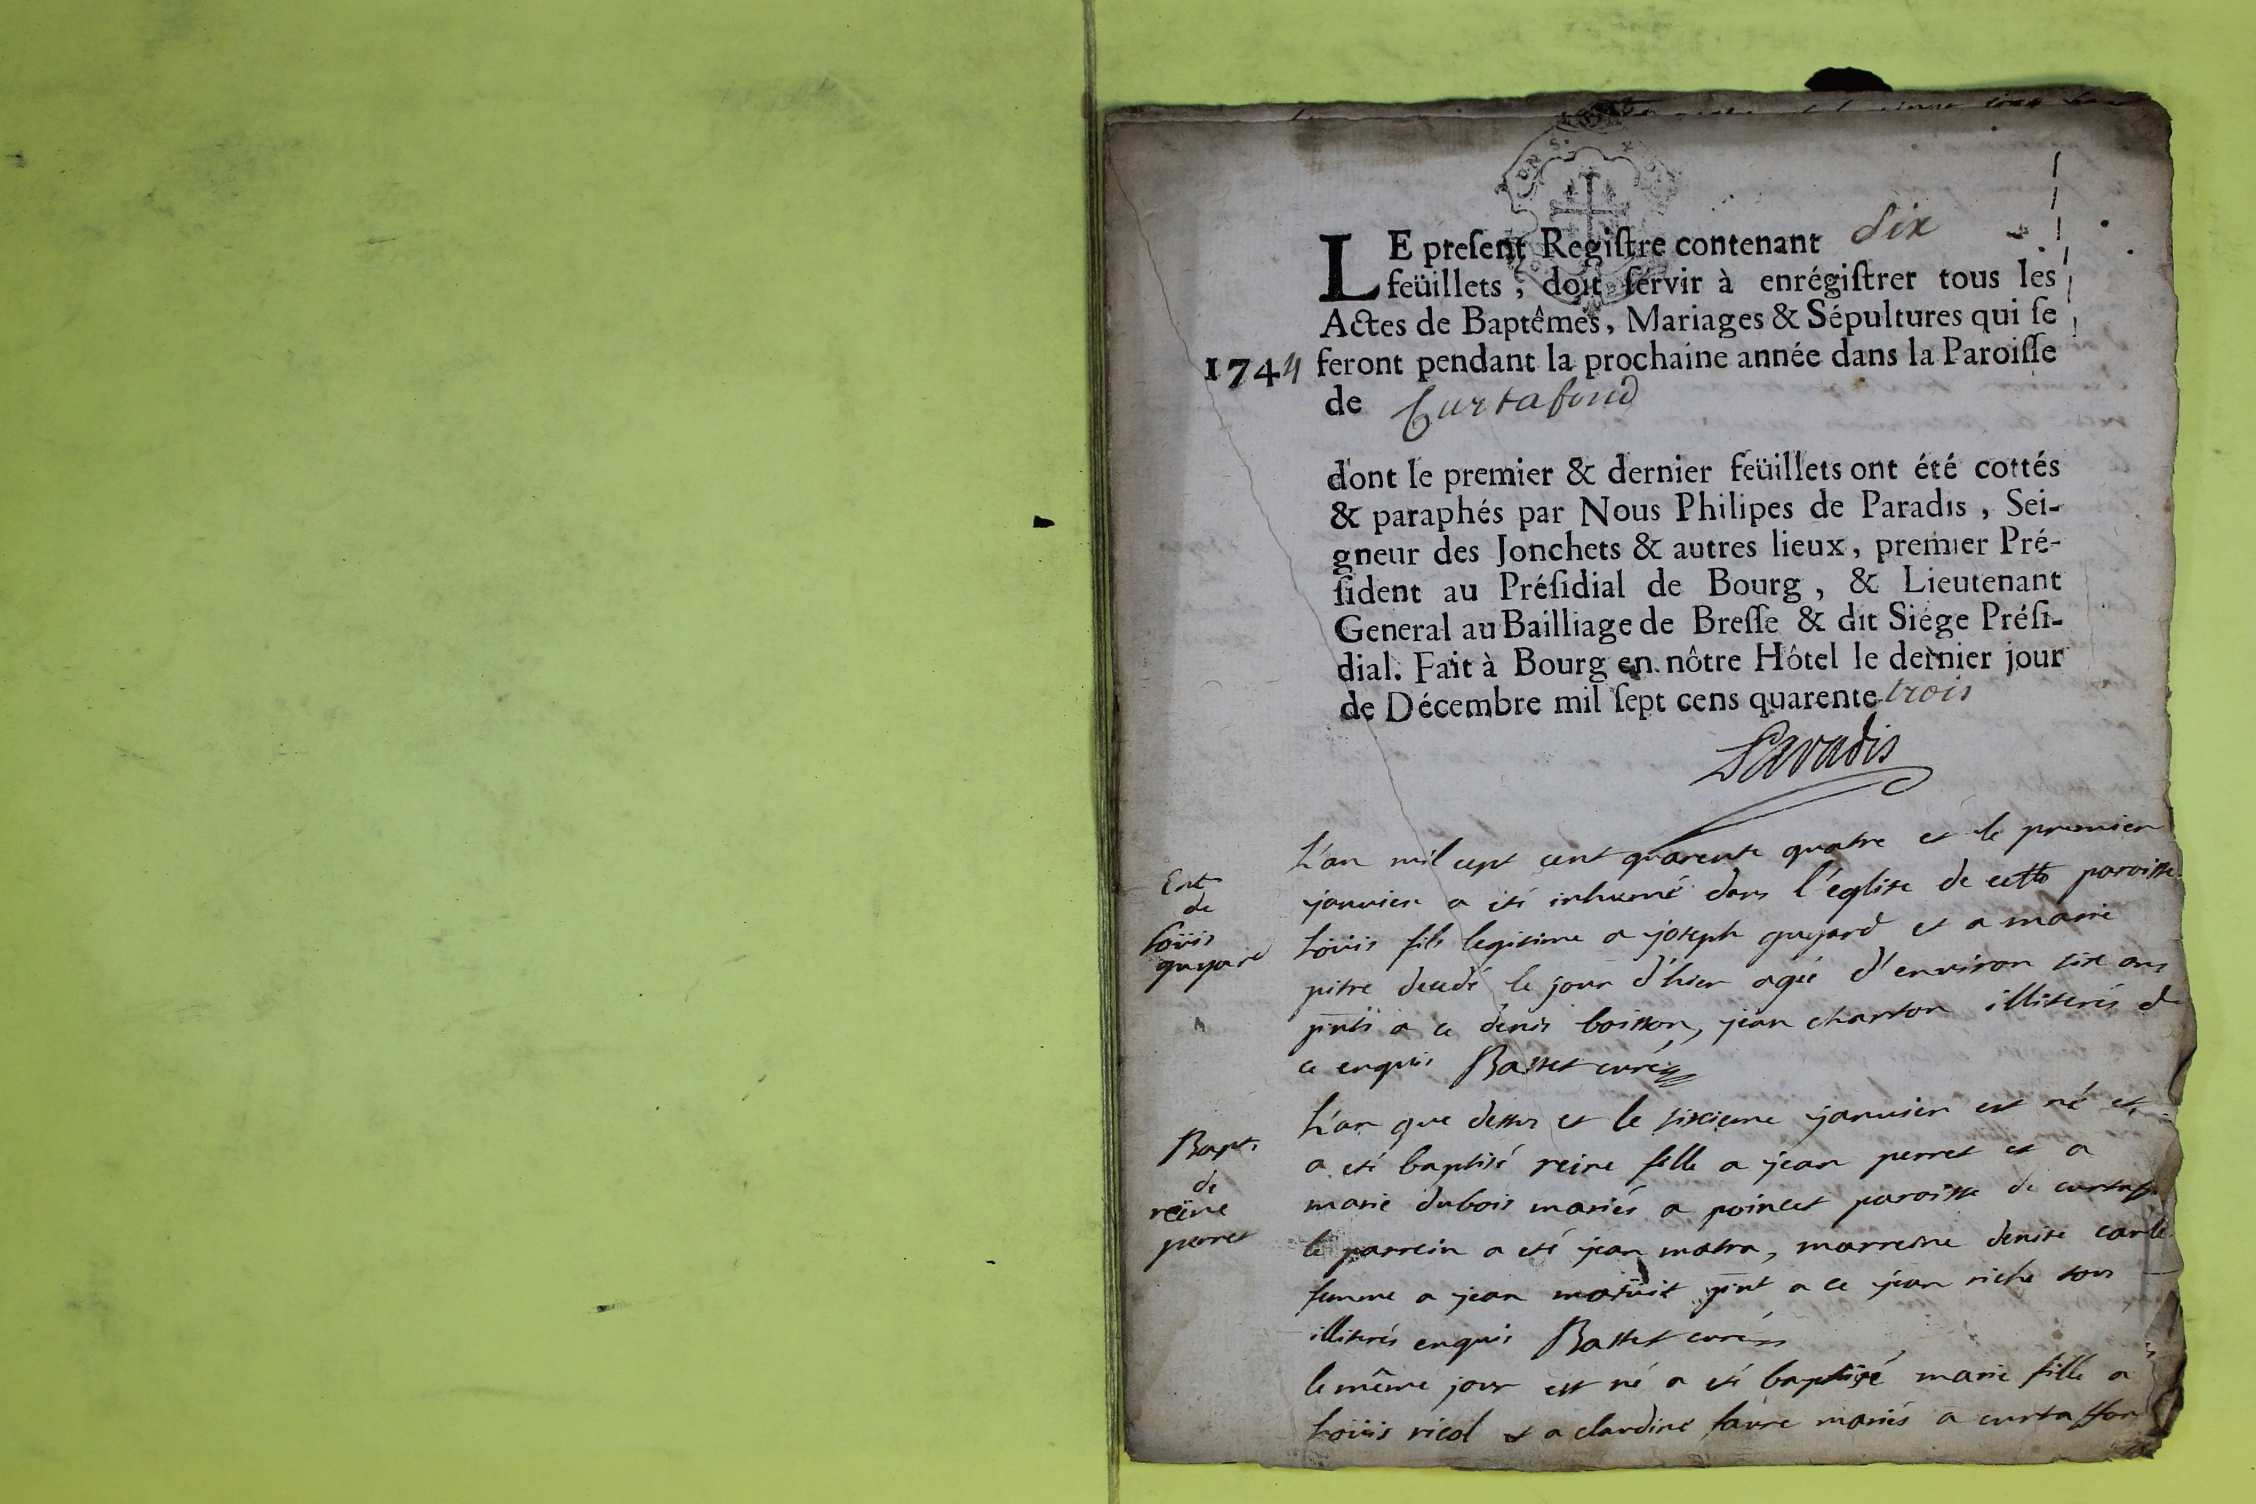 LE preſent Regiſtre contenant six
feüillets, doit ſervir à enrégiſtrer tous les
Actes de Baptêmes, Mariages & Sépultures qui ſe
1744 feront pendant la prochaine année dans la Paroiſſe
de Curtafond
dont le premier & dernier feüillets ont été cottés
& paraphés par Nous Philipes de Paradis, Sei-
gneur des Jonchets & autres lieux, premier Pré-
ſident au Préſidial de Bourg, & Lieutenant
General au Bailliage de Breſſe & dit Siége Préſi-
dial. Fait à Bourg en nôtre Hôtel le dernier jour
de Décembre mil ſept cens quarente trois
Paradis
Ent
de
loüis
guyard
L'an mil cept cent quarente quatre et le premier
janvier a eté inhumé dans l'église de cette paroisse
loüis fils legitime a joseph guyard et a marie
pitre decedé le jour d'hier agé d'environ six ans
pnts a ce denis boisson, jean charton illiterés de
ce enquis Basset curé
Bapt
de
reine
perret
L'an que dessus et le sixieme janvier est né et
a eté baptisé reine fille a jean perret et a
marie dubois mariés a poincet paroisse de
le parrein a eté jean matra, marreine denise
femme a jean pnt a ce jean riche tous
illiterés enquis Basset curé
le même jour est né a eté baptisé marie fille a
loüis nicol et a claudine favre mariés a curtaffon